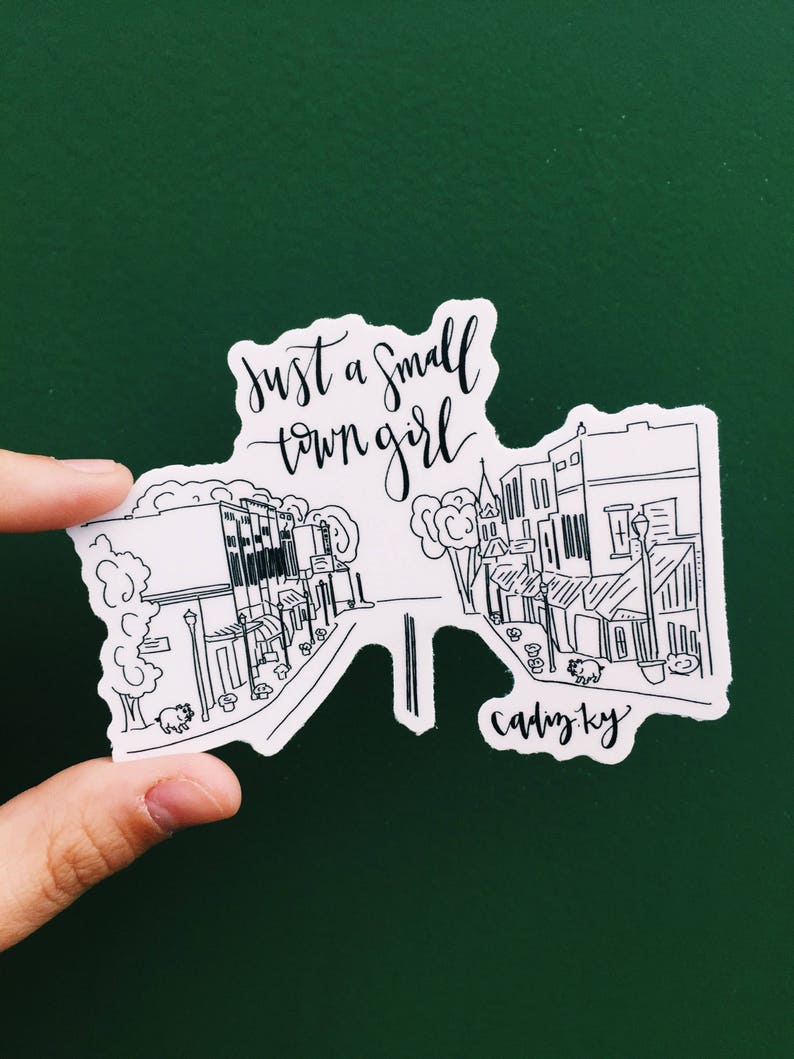 just a small
town girl
cadiz. ky